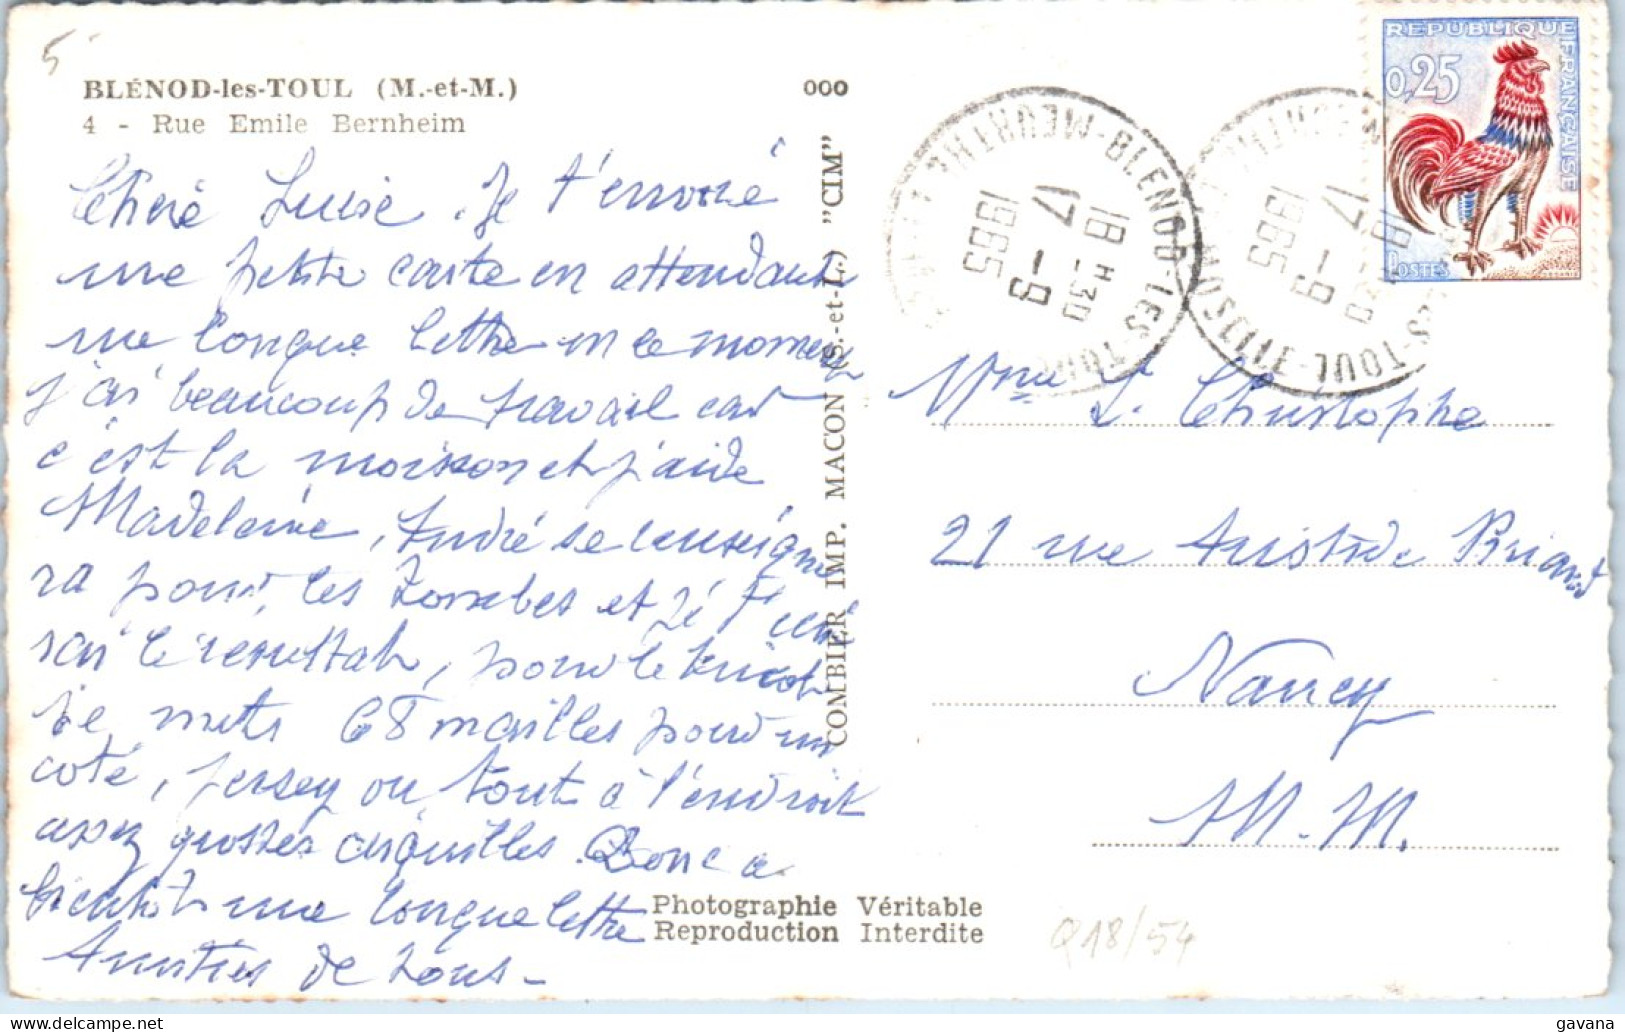 5
BLÉNOD-les-TOUL (M.-et-M.)
4 - Rue Emile Bernheim
Chère Luise. Je t'envoie
une petite carte en attendant
une longue lettre en ce moment
j'ai beaucoup de travail car
c'est la moisson et j'aide
Madeleine, André se renseigne
ra pour les et je t'écri
rai le résultat, pour le tricot
je mets 68 mailles pour un
coté, jersey ou tout à l'endroit
assez grosses aiguilles. Donc a
bientot une longue lettre
Amitiés de tous -
000
COMBIER IMP. MACON (S.-et-L.) "CIM"
Photographie Véritable
Reproduction Interdite
BLENOD-LES-TOUL
MEURTHE
18 H 30
17 - 9
1965
BLENOD-LES-TOUL
18 H 30
17 - 9
1965
REPUBLIQUE FRANÇAISE
0,25
POSTES
Mme L. Christophe
21 rue Aristide Briand
Nancy
M.-M.
Q18/54
delcampe.net
gavana